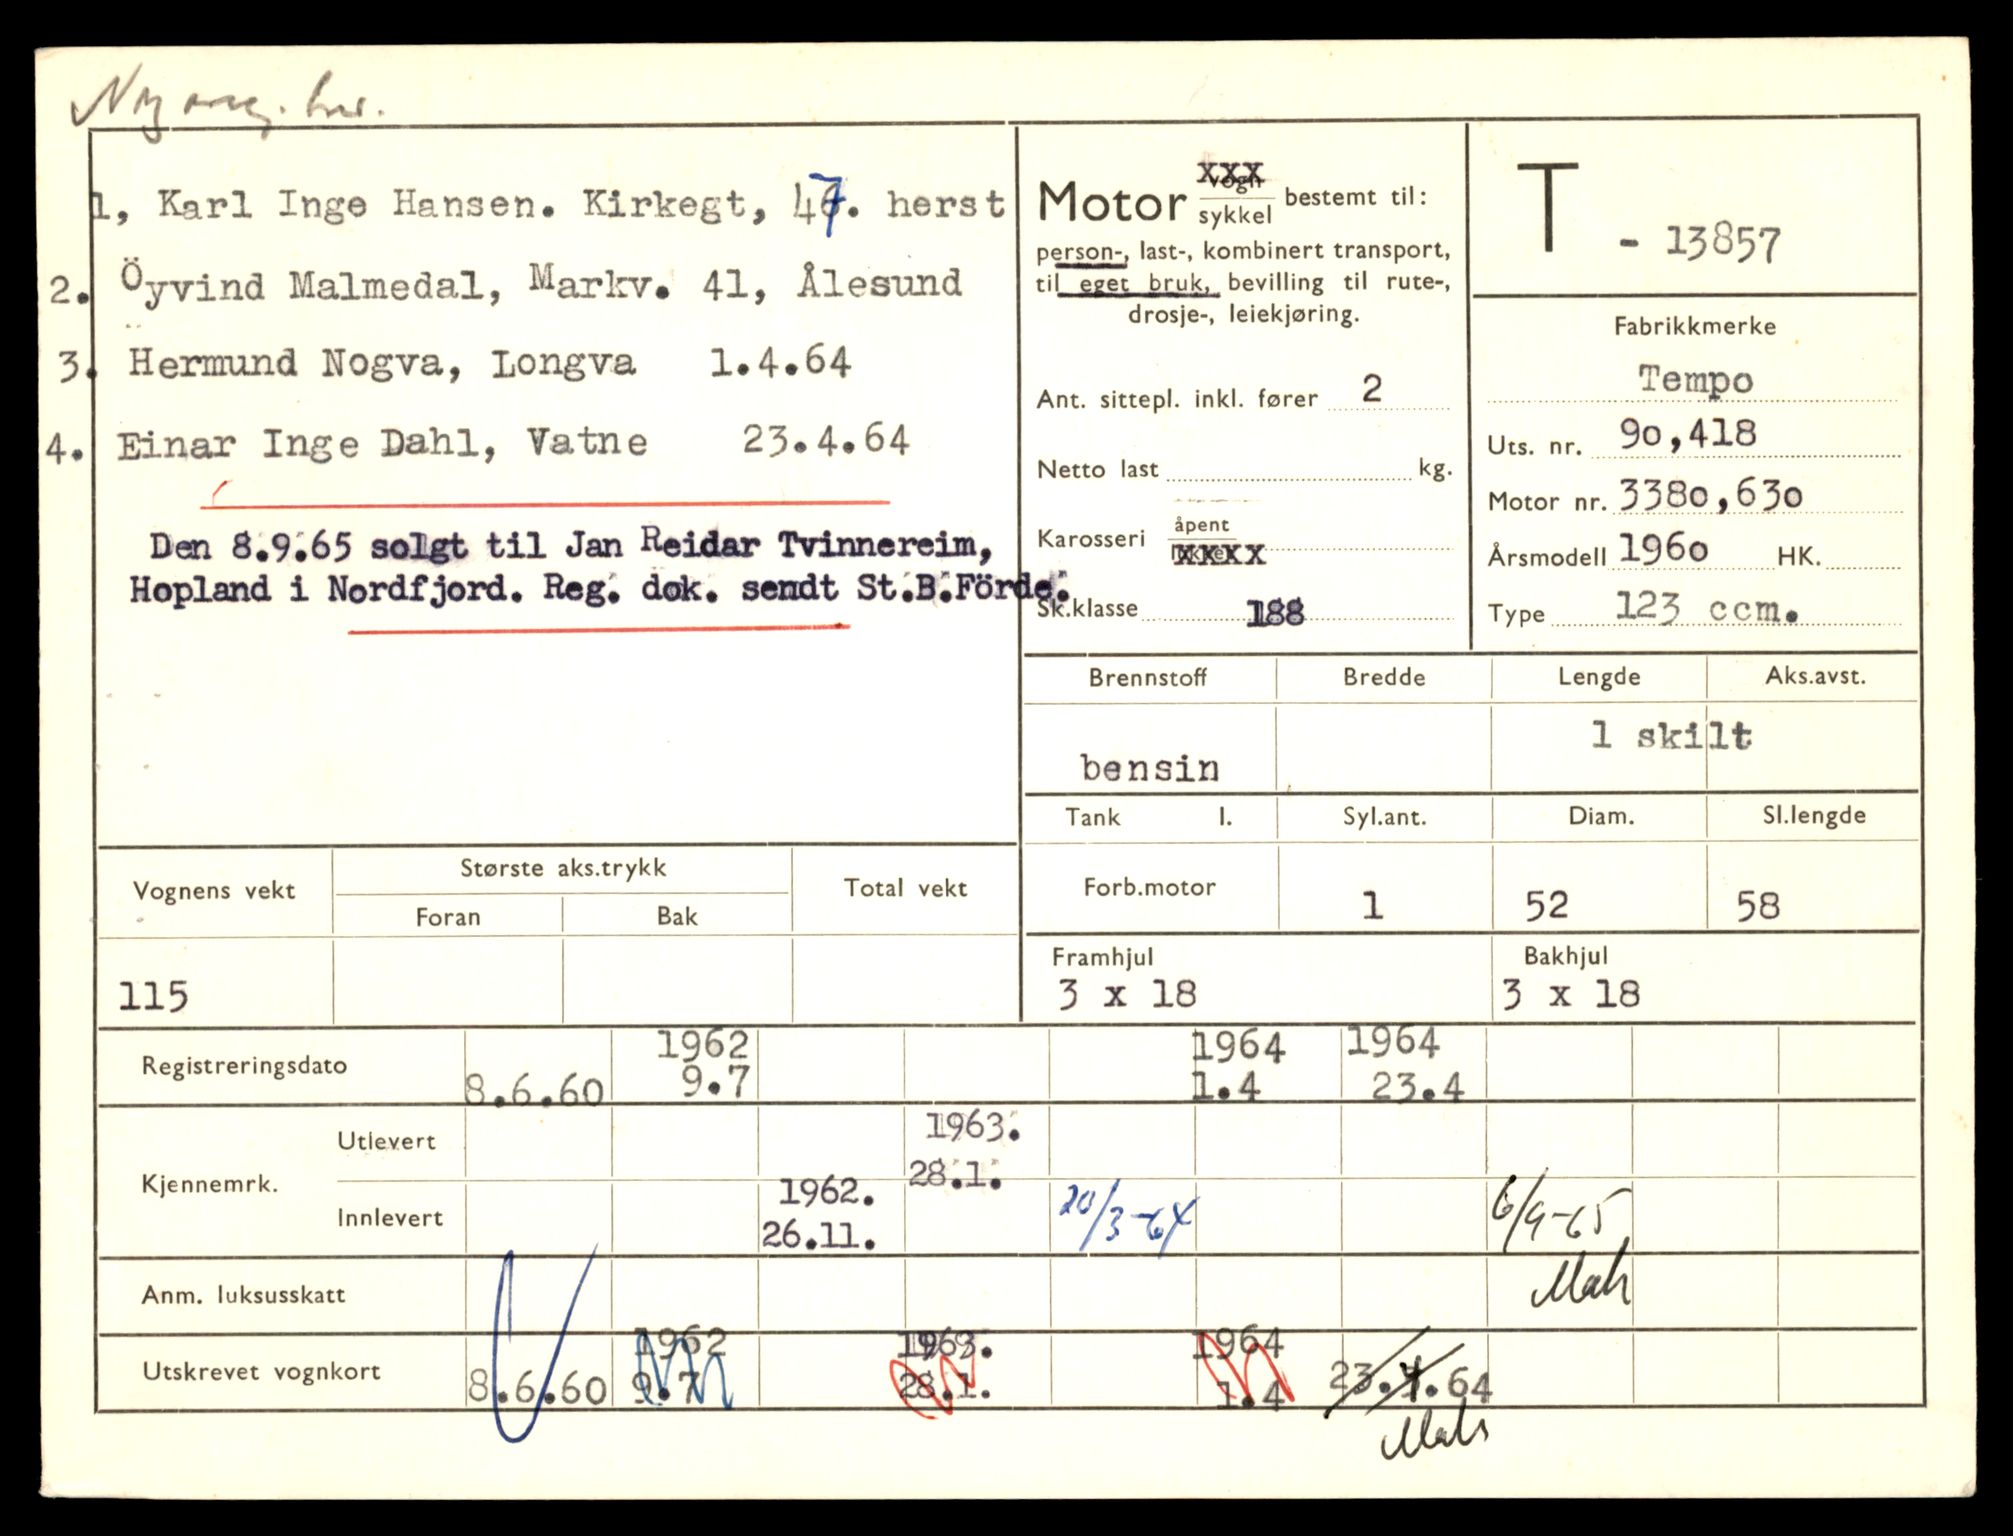 1, Karl Inge Hansen. Kirkegt, 47. herst
2. Öyvind Malmedal, Markv. 41, Ålesund
3. Hermund Nogva, Longva 1.4.64
4. Einar Inge Dahl, Vatne 23.4.64
Den 8.9.65 solgt til Jan Reidar Tvinnereim,
Hopland i Nordfjord. Reg. dok. sendt St.B.Förde.
xxx
Motor vogn sykkel bestemt til:
person-, last-, kombinert transport,
til eget bruk, bevilling til rute-,
drosje-, leiekjøring.
Ant. sittepl. inkl. fører 2
Netto last kg.
Karosseri åpent
xxxx
Sk.klasse 188
T - 13857
Fabrikkmerke
Tempo
Uts. nr. 90,418
Motor nr. 3380,630
Årsmodell 1960 HK.
Type 123 ccm.
Brennstoff Bredde Lengde Aks.avst.
1 skilt
bensin
Tank l. Syl.ant. Diam. Sl.lengde
Forb.motor 1 52 58
Framhjul Bakhjul
3 x 18 3 x 18
Vognens vekt Største aks.trykk Total vekt
Foran Bak
115
Registreringsdato 8.6.60 1962 9.7 1964 1.4 1964 23.4
Kjennemrk.
Utlevert 1963. 28.1.
Innlevert 1962. 26.11. 20/3-64 6/9-65
Anm. luksusskatt
Utskrevet vognkort 8.6.60 1962 9.7 1963. 28.1. 1964 1.4 23.4.64